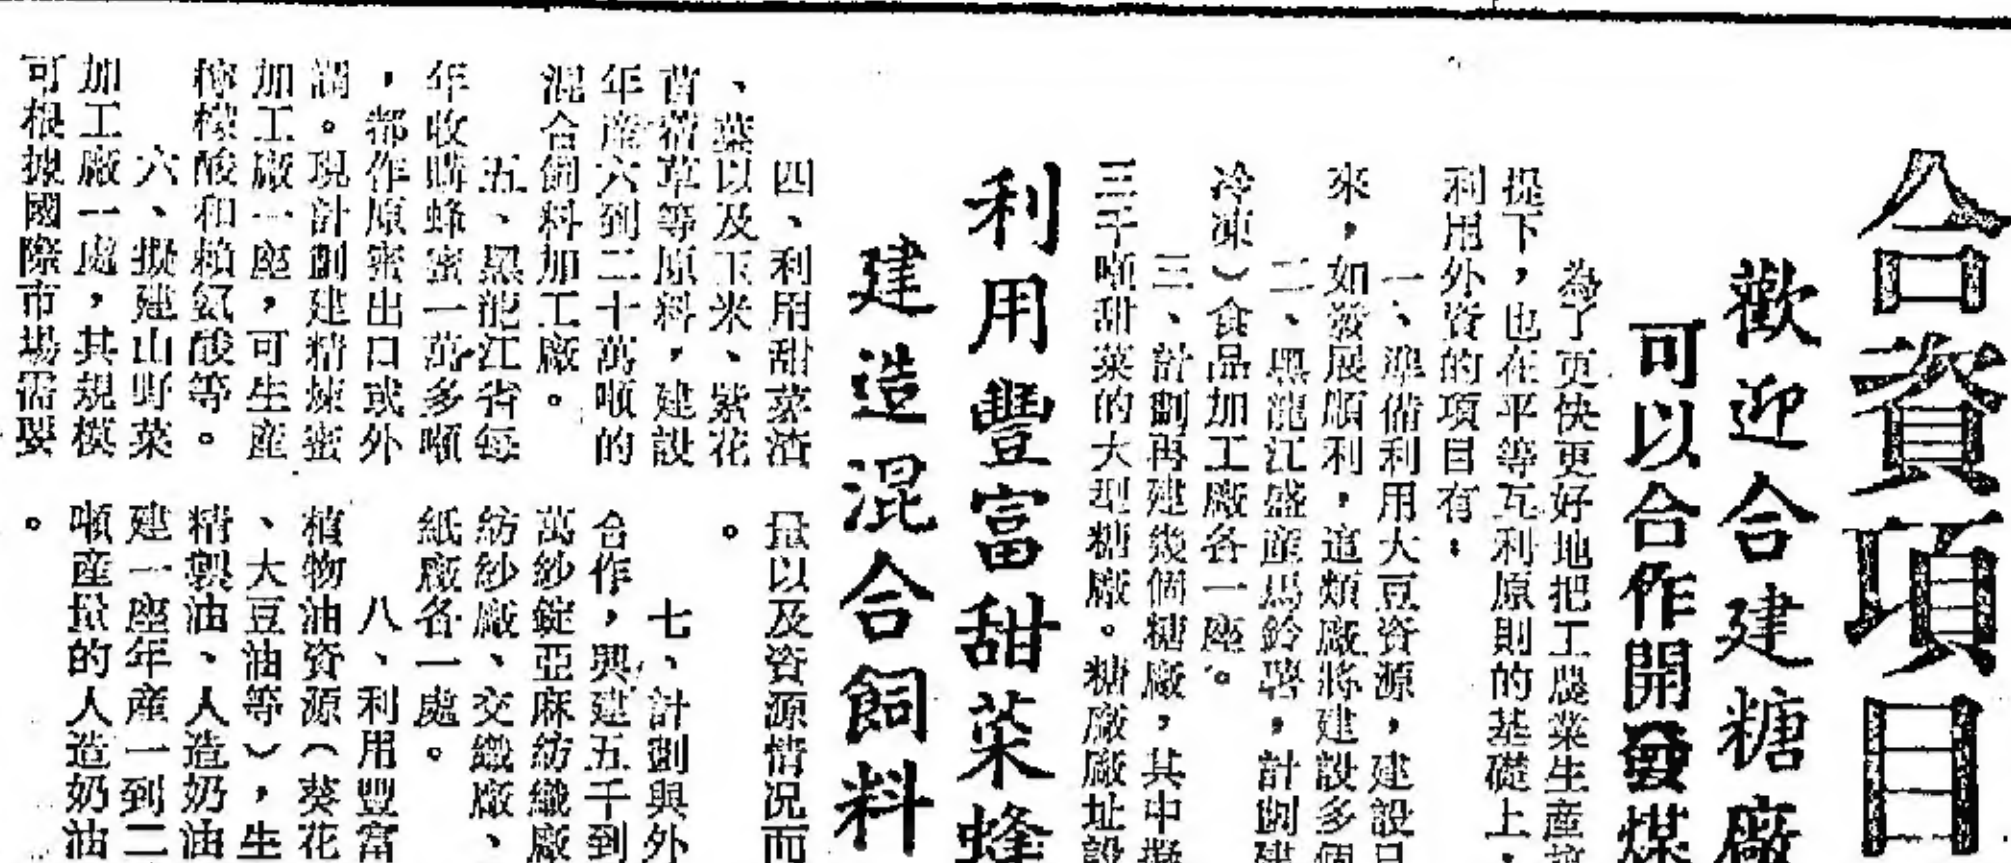 合資項目
歡迎合建糖廠
可以合作開發煤
為了更快更好地把工農業生産
提下，也在平等互利原則的基礎上，
利用外資的項目有：
一、準備利用大豆資源，建設
來，如發展順利，這類廠將建設多個
二、黑龍江盛產馬鈴薯，計劃建
冷凍）食品加工廠各一座。
三、計劃再建幾個糖廠，其中擬
三千噸甜菜的大型糖廠。糖廠廠址設
利用豐富甜菜蜂
建造混合飼料
四、利用甜菜渣
、葉以及玉米、紫花
苜蓿草等原料，建設
年産六到二十萬噸的
混合飼料加工廠。
五、黑龍江省每
年收購蜂蜜一萬多噸
，都作原蜜出口或外
調。現計劃建精煉蜜
加工廠一座，可生産
檸檬酸和賴氨酸等。
六、擬建山野菜
加工廠一處，其規模
可根據國際市場需要
量以及資源情況而
。
七、計劃與外
合作，興建五千到
萬紗錠亞麻紡織廠
紡紗廠、交織廠、
紙廠各一處。
八、利用豐富
植物油資源（葵花
、大豆油等），生
精製油、人造奶油
建一座年産一到二
噸産量的人造奶油
。